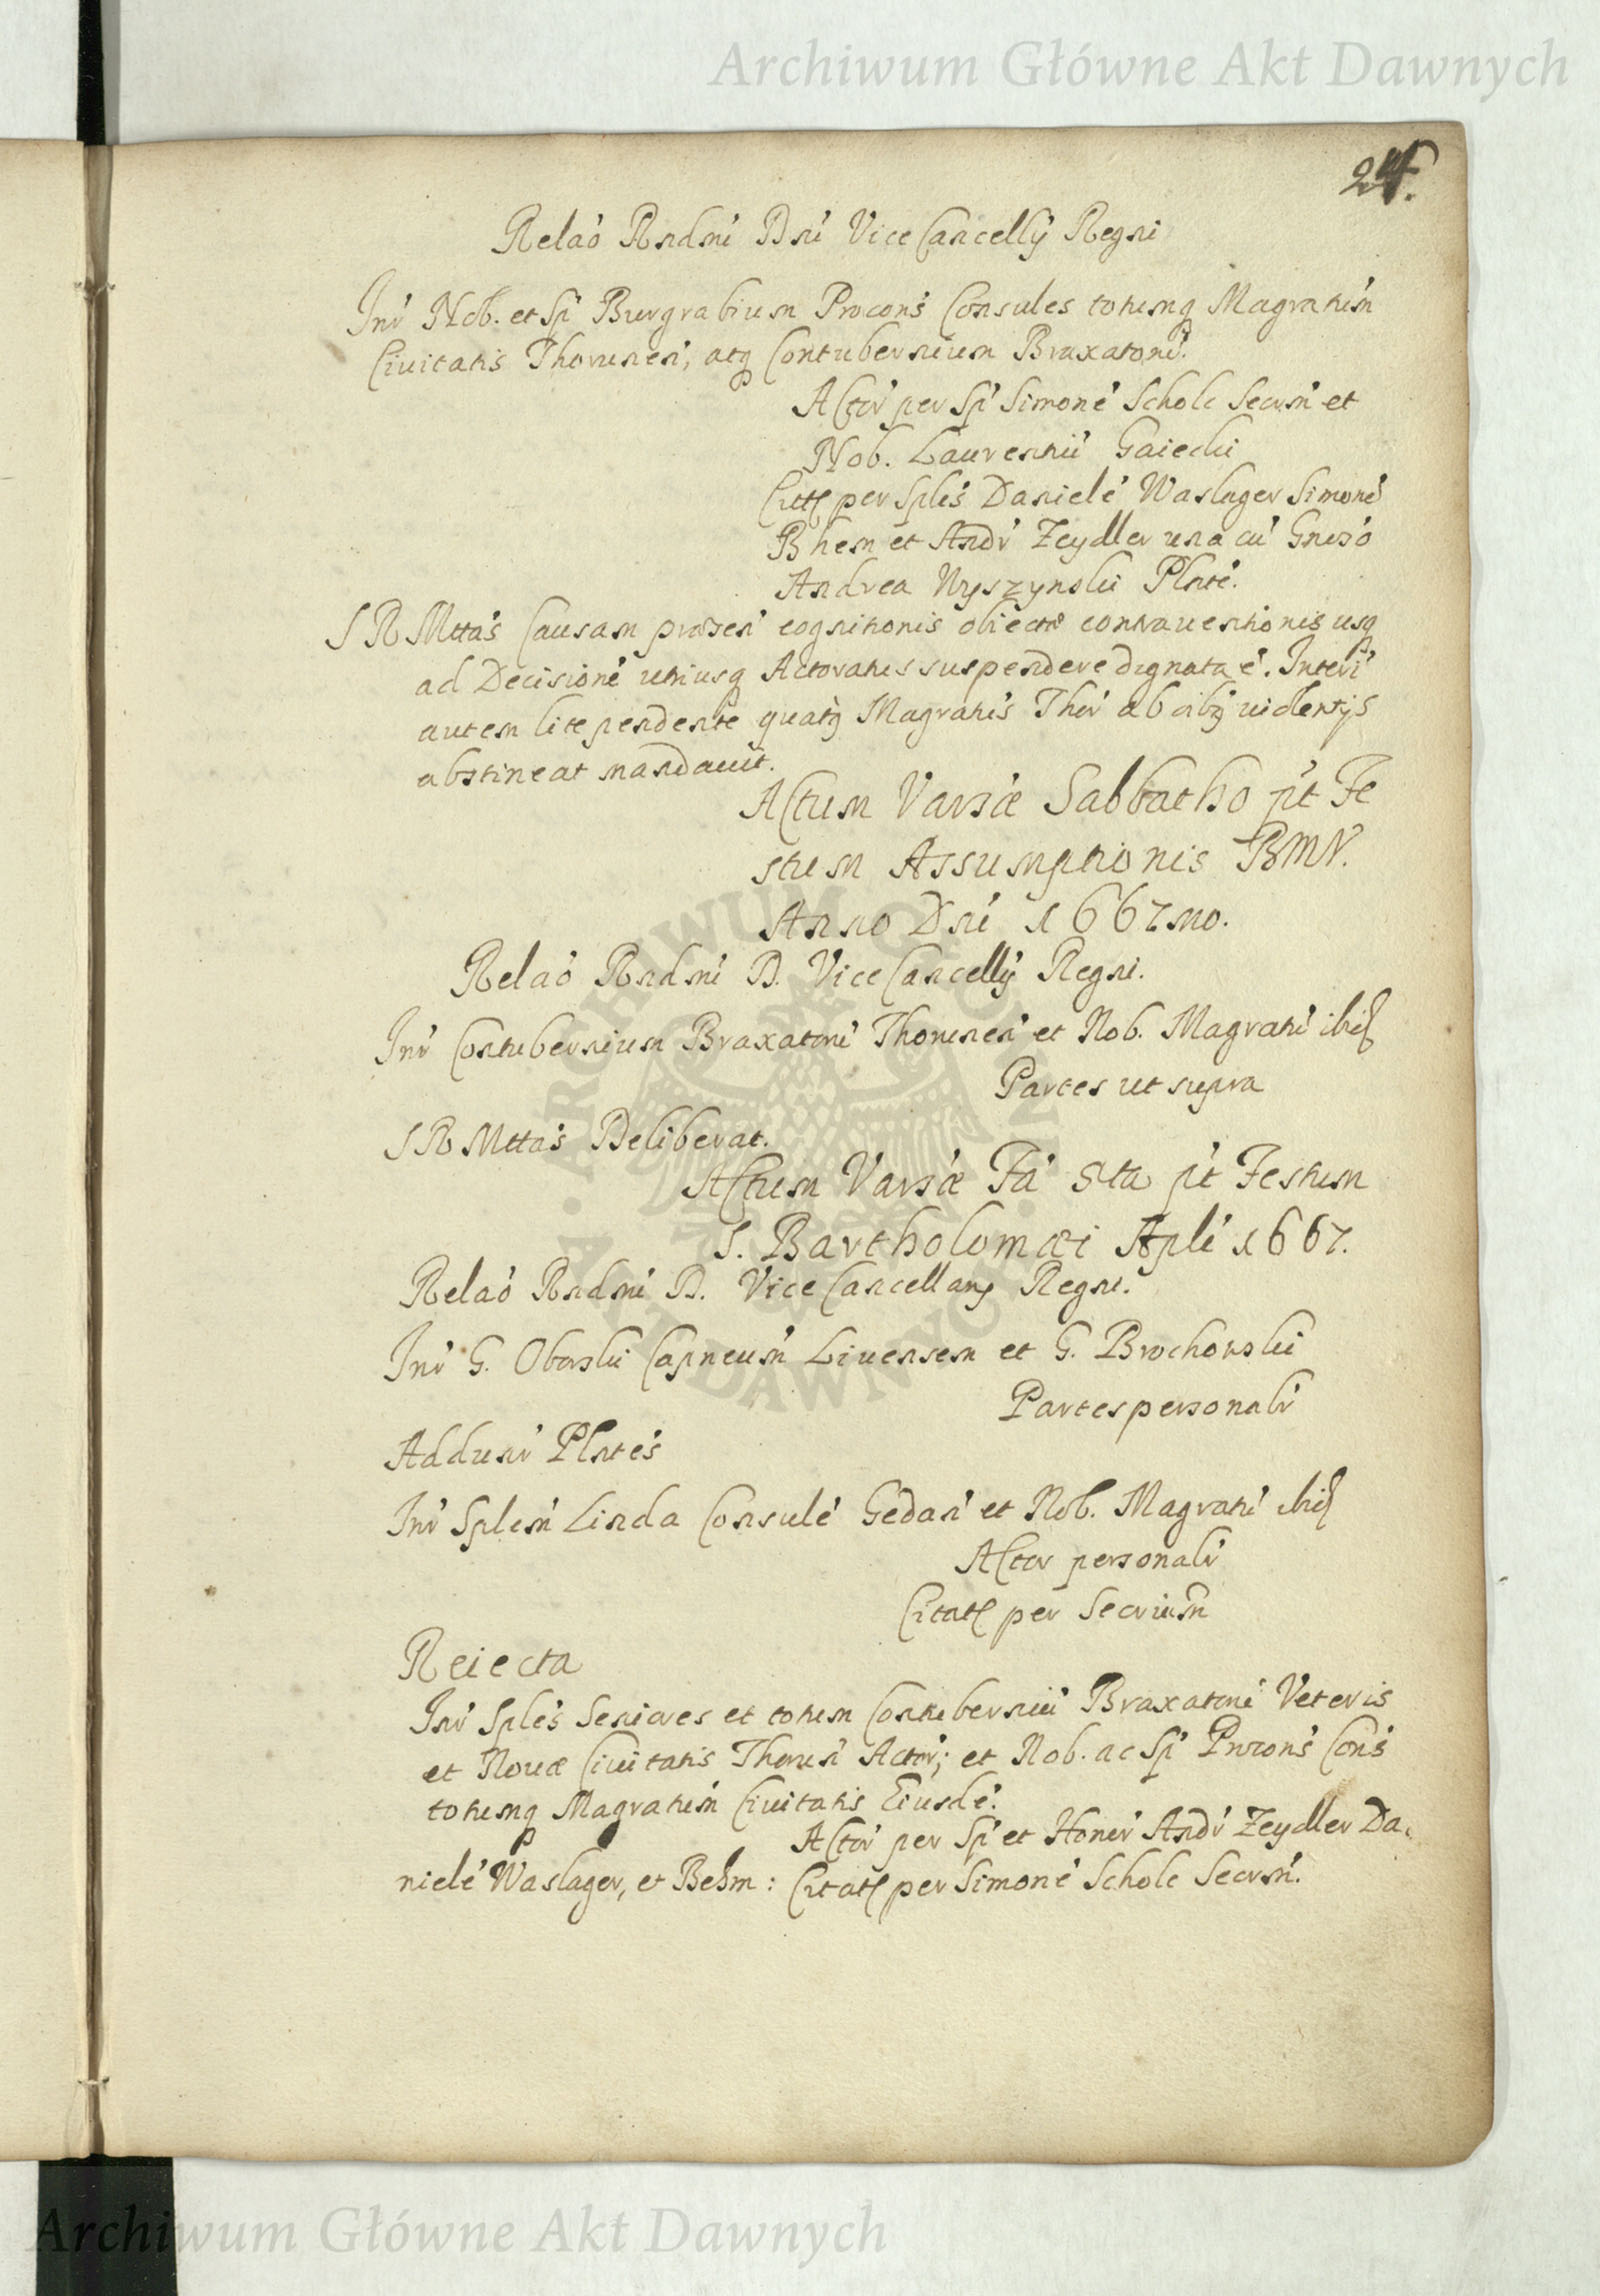 Archiwum Główne Akt Dawnych
24.
Relaó Rndmi Dni Vice Cancellÿ Regni
Inr Nob. et Sp Burgrabium Procons Consules totumq Magratum
Civitatis Thorunen, atq Contubernium Braxatorú.
Actor per Sp Simoné Scholc Secrm et
Nob. Laurentiú Gaiecki
Citt per Sples Danielé Waslager Simoné
Bhem et Andr Zeydler una cú Gnŕso
Andrea Wyszynski Plnte.
S R Mttas Causam præsen cognitionis obiectæ contraventionis usq
ad Decisioné utriusq Actoratus suspendere dignata é. Interi
autem lite pendente quatq Magratus Thor ab oibq violentÿs
abstineat mandavit.
Actum Varsæ Sabbatho pt Fe
stum Assumptionis BMV.
Anno Dni 1667mo.
Relaó Rndmi D. Vice Cancellÿ Regni.
Inr Contubernium Braxatorú Thorunen et Nob. Magratú ibid
Partes ut supra
S R Mttas Deliberat.
Actum Varsæ Fa 6ta pt Festum
S. Bartholomæi Apli 1667.
Relaó Rndmi D. Vice Cancellarÿ Regni.
Inr G. Oborski Capneum Livensem et G. Brochowski
Partes personalr
Addunr Plntes
Inr Splem Linda Consulé Gedan et Nob. Magratú ibid
Actor personalr
Citat per Secrium
Reiecta
Inr Sples Seniores et totum Contuberniú Braxatorú Veteris
et Novæ Civitatis Thorun Actor; et Nob. ac Sp Procons Cons
totumq Magratum Civitatis Eiusdé.
Actor per Sp et Honor Andr Zeydler Da
nielé Waslager, et Behm: Citat per Simoné Scholc Secrm.
Archiwum Główne Akt Dawnych